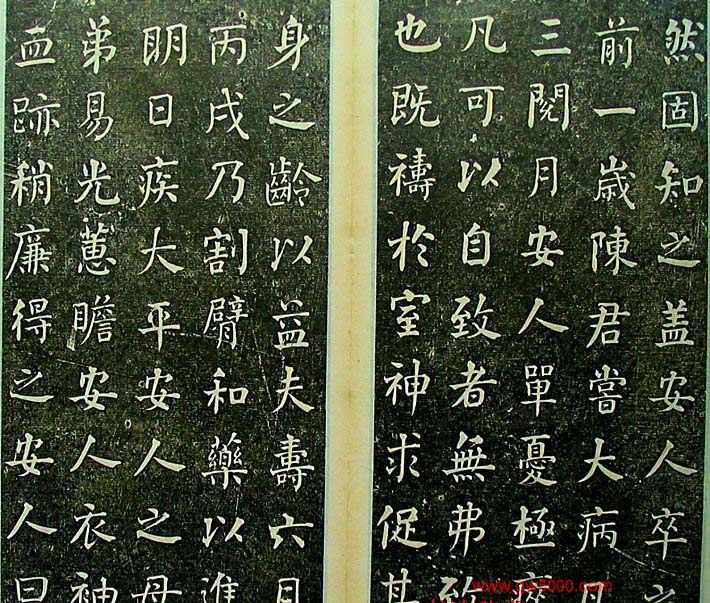 然固知之盖安人卒之
前一歲陳君嘗大病
三閱月安人單憂極
凡可以自致者無弗致
也既禱於室神求促其
身之齡以益夫壽六月
丙戌乃割臂和藥以進
明日疾大平安人之母
弟易光蔥瞻安人衣
血跡稍廉得之安人曰